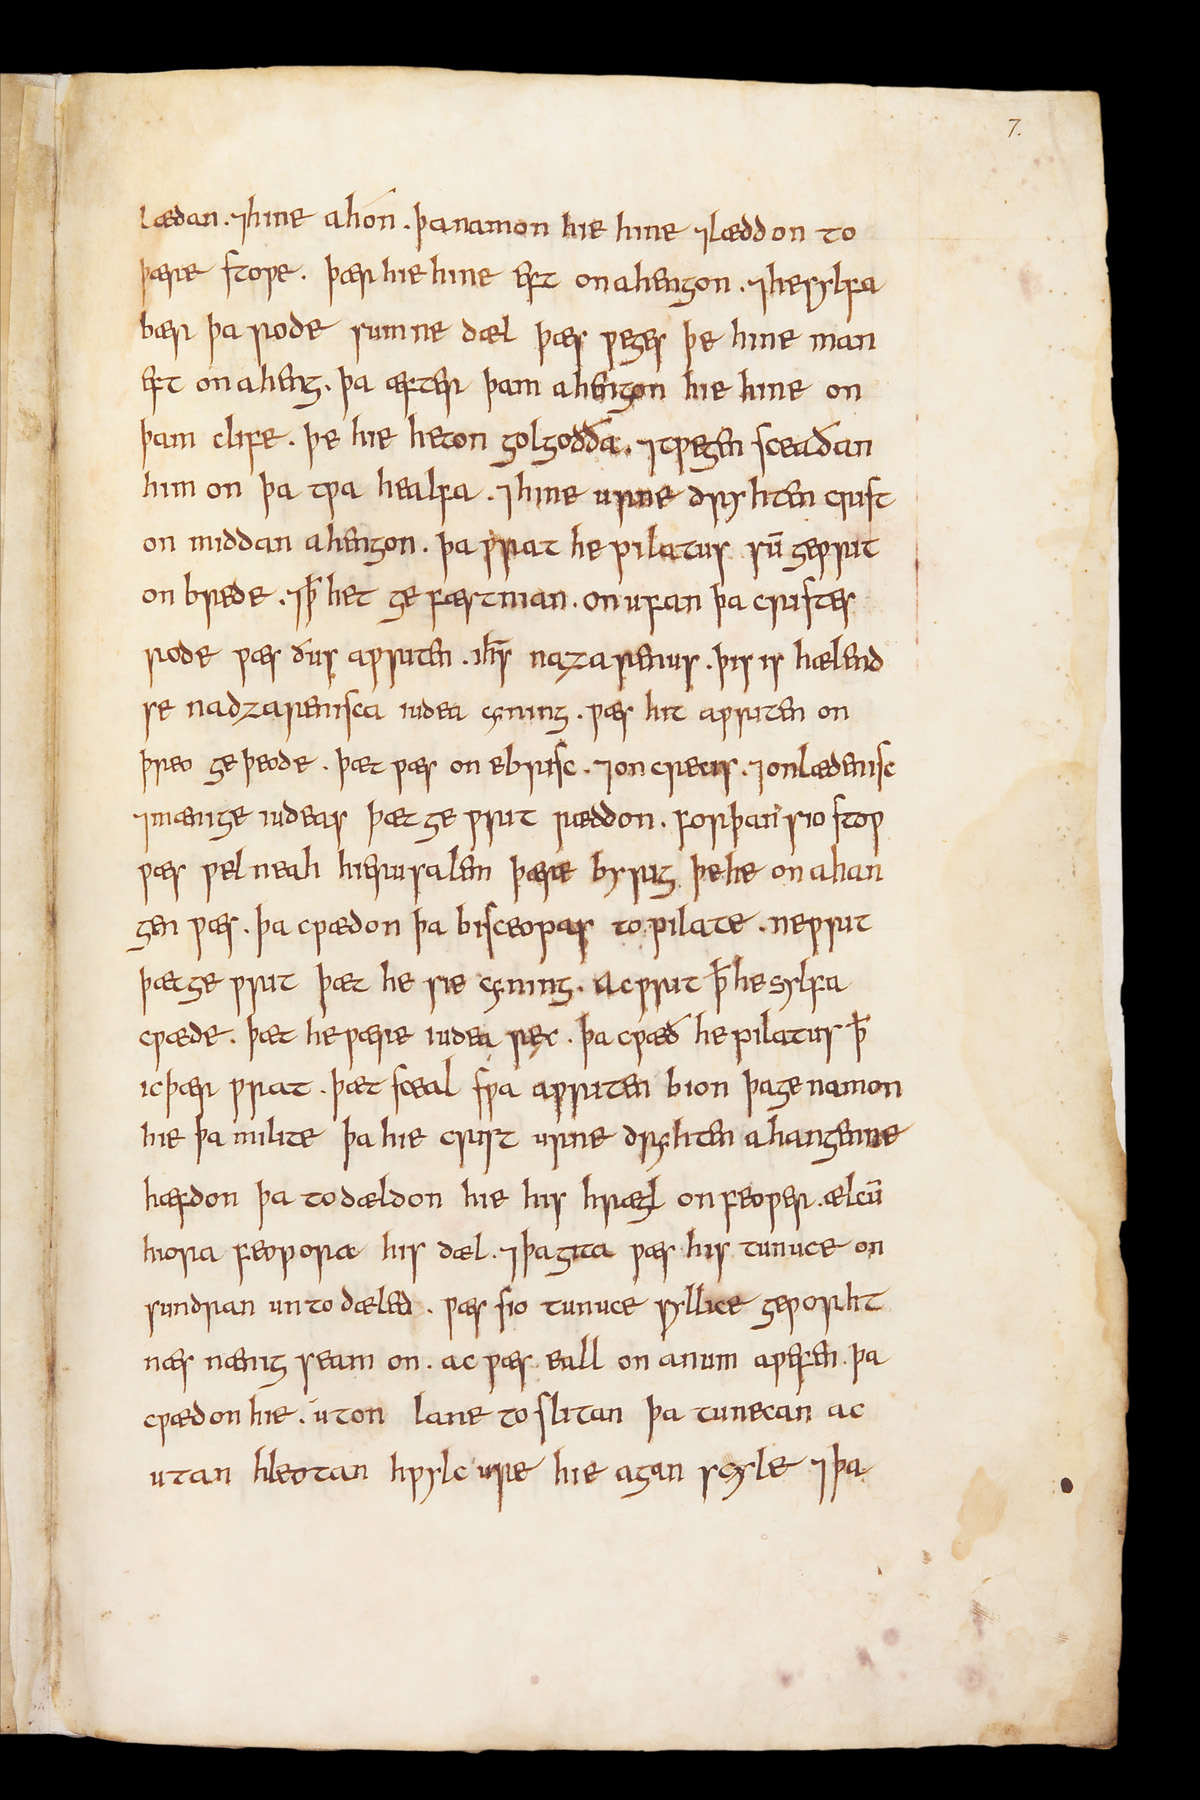 7.
lædan . ⁊hine ahón . þanamon hie hine ⁊læddon to
þære stoƿe . þær hie hine eft onahengon . ⁊hesylfa
bær þa rode sumne dæl þæs ƿeges þe hine man
eft onaheng . þa æfter þam ahengon hie hine on
þam clife . þe hie heton golgodða . ⁊tƿegen sceaðan
him on þa tƿa healfa . ⁊hine urne dryhten crist
on middan ahengon . þa ƿrat he pilatus sū geƿrit
on brede . ⁊þ̄ het ge fæstnian . onufan þa cristes
rode ƿæs ðus aƿriten . ih̄s nazarenus . þis is hælend
se nadzarenisca iudea cyning . ƿæs hit aƿriten on
þreo geþeode . þæt ƿæs on ebrisc . ⁊on crecis . ⁊onlædenisc
⁊mænige iudeas þæt ge ƿrit ræddon . forþan sio stoƿ
ƿæs ƿel neah hierusalem þære byrig þehe onahan
gen ƿæs . þa cƿædon þa bisceopas to pilate . neƿrit
þæt ge ƿrit þæt he sie cyning . acƿrit þ̄ he sylfa
cƿæde . þæt he ƿære iudea rex . þa cƿæð he pilatus þ̄
icþær ƿrat . þæt sceal sƿa aƿriten bion þagenamon
hie þa milite þa hie crist urne dryhten ahangenne
hæfdon þa todældon hie his hrægl onfeoƿer . ælcū
hiora feoƿora his dæl . ⁊þagita ƿæs his tunuce on
sundran untodæled . ƿæs sio tunuce syllice geƿorht
næs nænig seam on . ac ƿæs eall on anum aƿefen . þa
cƿædon hie . uton lane toslitan þa tunecan ac
utan hleotan hƿylc ure hie agan scyle ⁊þa